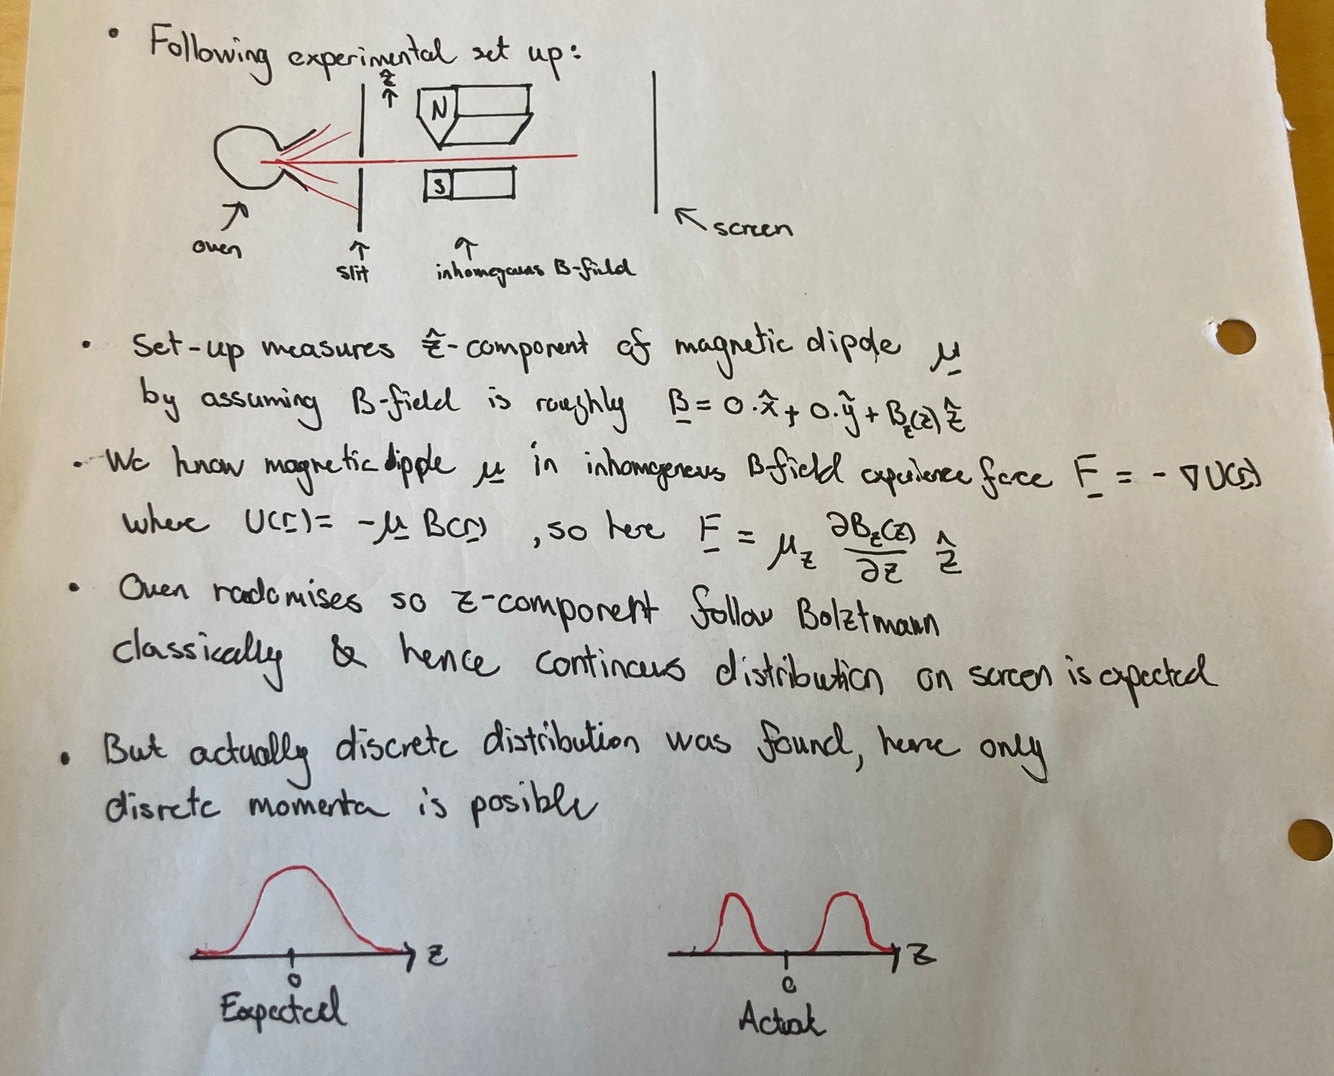 • Following experimental set up:
ẑ
N
S
oven
slit
inhomogenous B-field
screen
• Set-up measures ẑ-component of magnetic dipole μ
by assuming B-field is roughly B = 0·x̂ + 0·ŷ + B_z(z) ẑ
• We know magnetic dipole μ in inhomogeneous B-field experience force F = - ∇U(r)
where U(r) = -μ B(r) , so here F = μ_z ∂B_z(z)/∂z ẑ
• Oven radomises so z-component follow Bolztmann
classically & hence continous distribution on screen is expected
• But actually discrete distribution was found, hence only
disrete momenta is posible
z
0
Expected
z
0
Actual